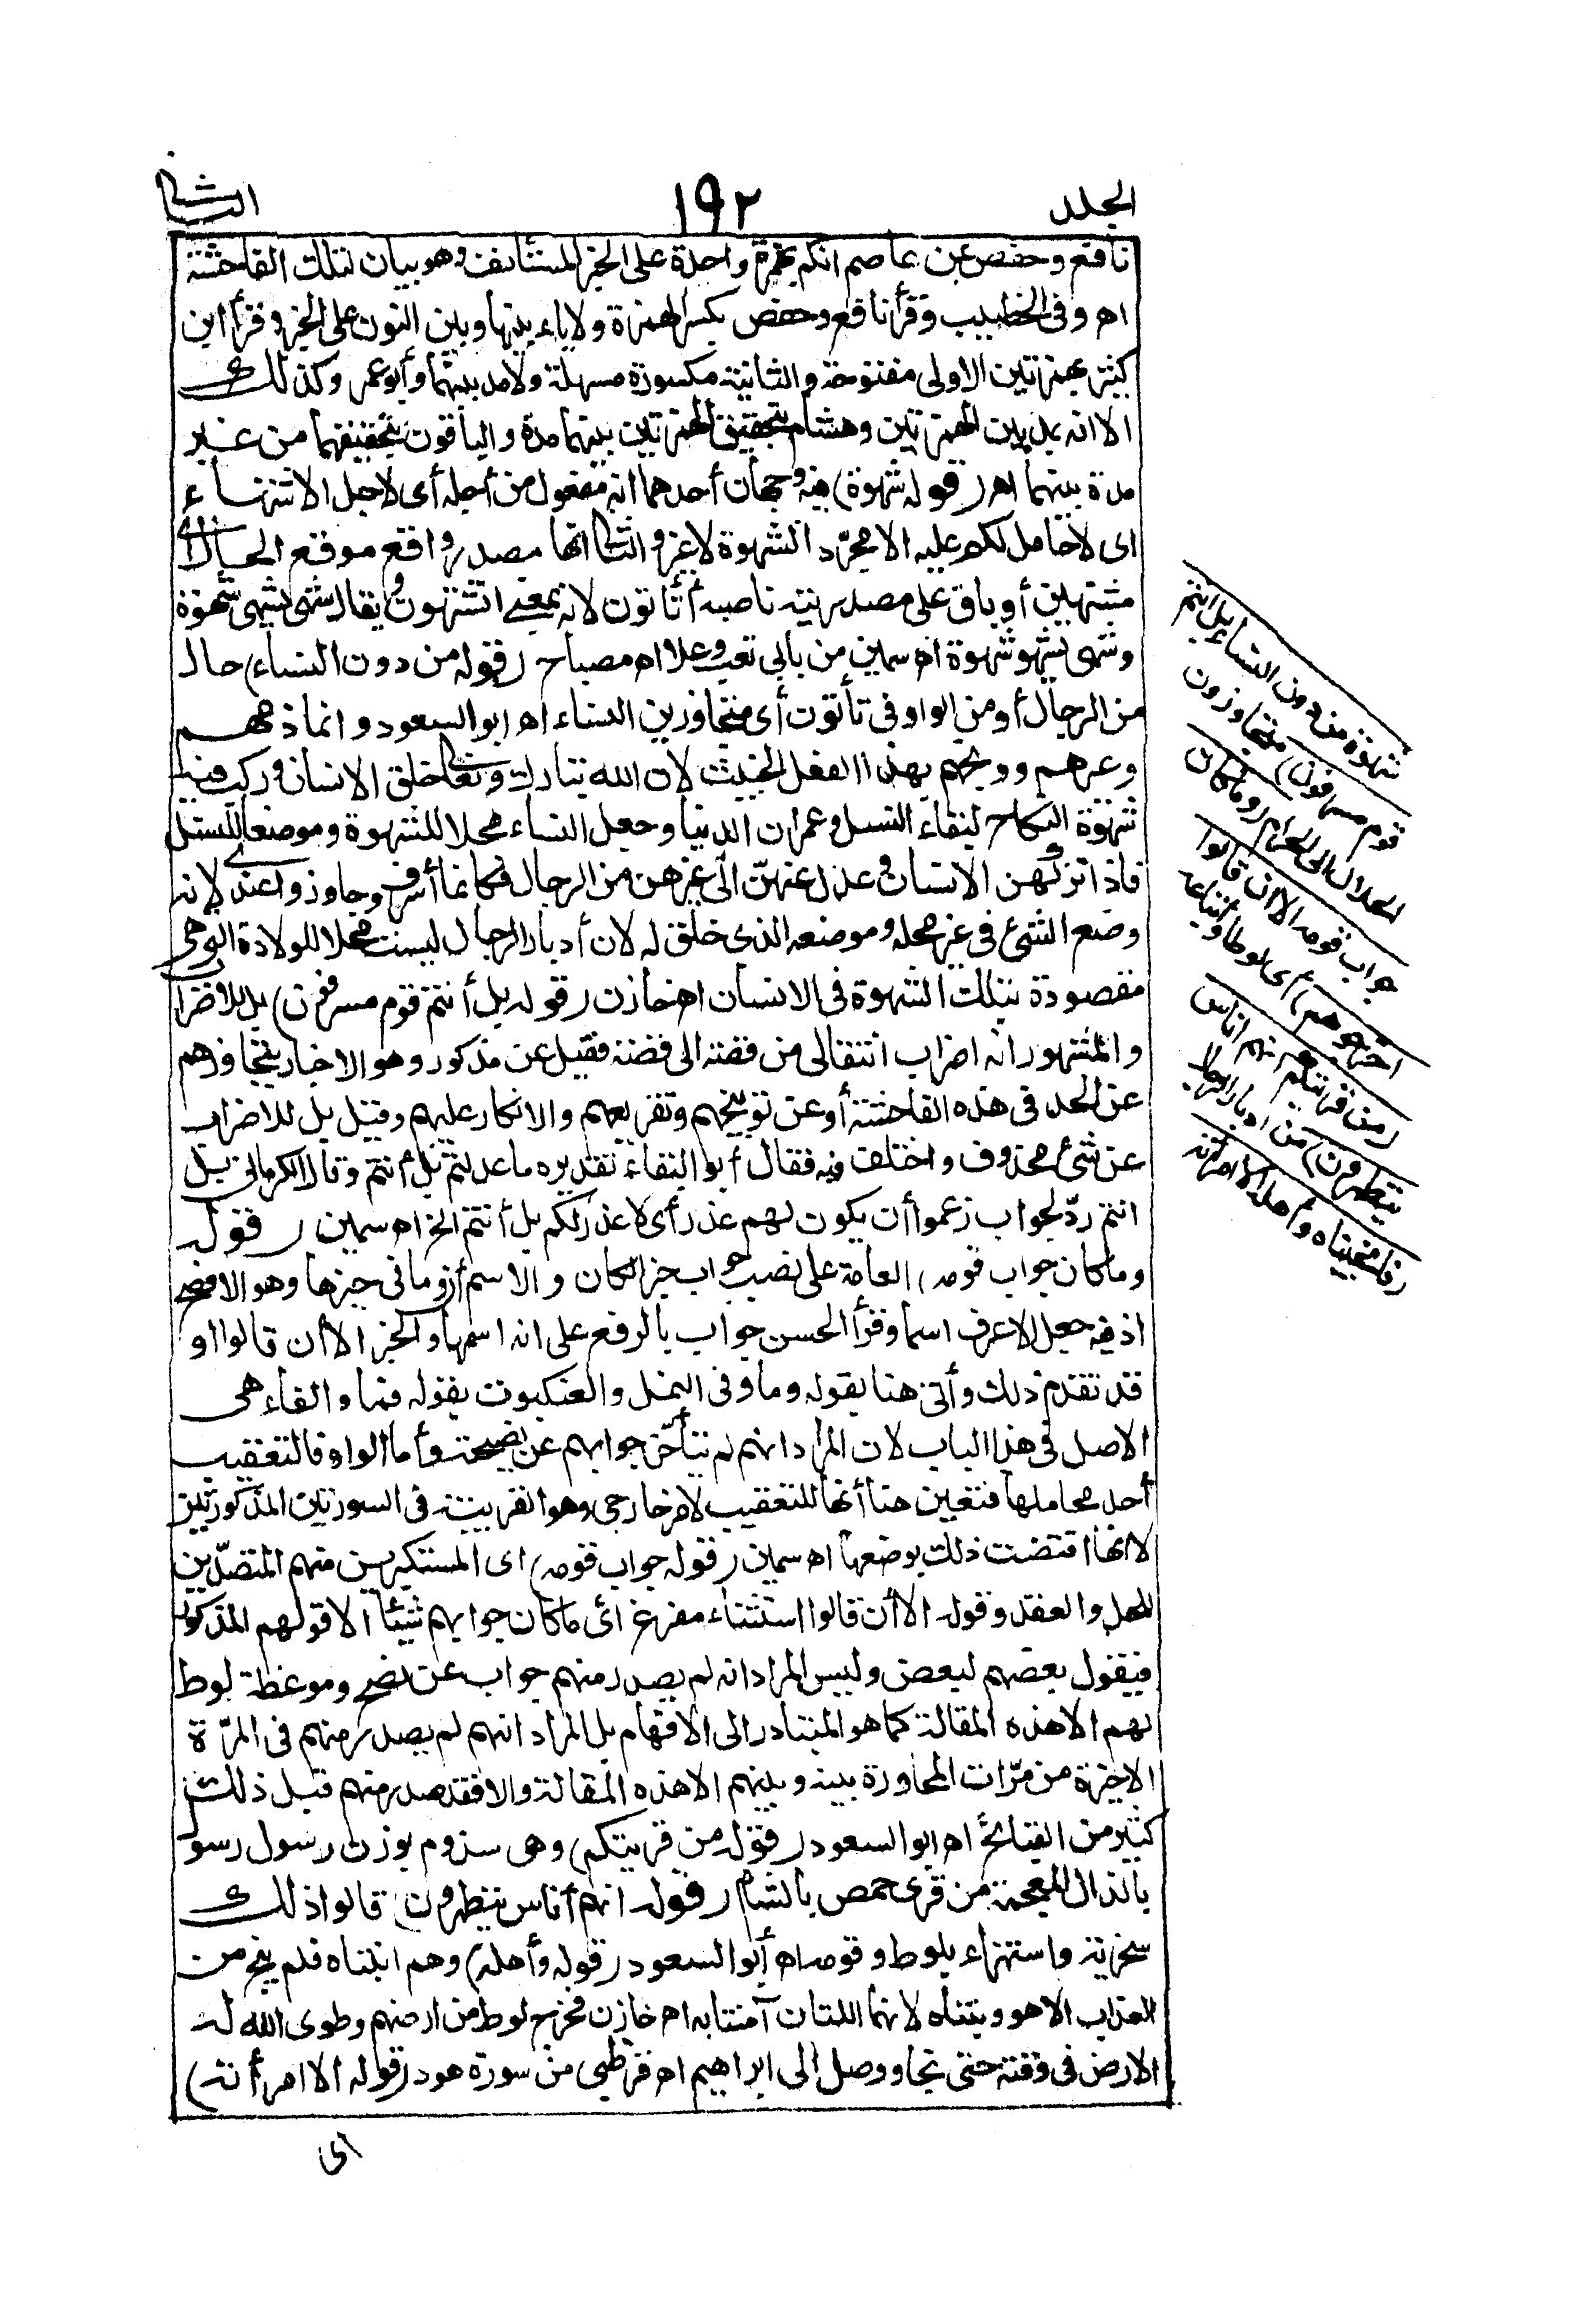 الجلد
١٩٢
الثاني
نافع وحفص عن عاصم انكم بهمزة واحدة على الخبر المستأنف وهو بيان لتلك الفاحشة
اه وفى الخطيب وقرأ نافع وحفص بكسر الهمزة ولا ياء بينها وبين النون على الخبر وقرأ ابن
كثير بهمزتين الاولى مفتوحة والثانية مكسورة مسهلة ولا مد بينهما وأبو عمر وكذلك
الا انه يمد بين الهمزتين وهشام بتحقيق الهمزتين بينهما مدة والباقون بتحقيقهما من غير
مدة بينهما اه (قوله شهوة) فيه وجهان أحدهما انه مفعول من أجله أى لاجل الاشتهاء
اى لا حامل لكم عليه الا مجرّد الشهوة لا غير والثانى انها مصدر واقع موقع الحال أى
مشتهين أو باق على مصدريته ناصبه أتأتون لانه بمعنى اتشتهون ويقال شهى يشهى شهوة
وشهى يشهو شهوة اه سمين من بابى تعب وعلا اه مصباح (قوله من دون النساء) حال
من الرجال أو من الواو فى تأتون أى متجاوزين النساء اه ابو السعود وانما ذمهم
وعيرهم ووبخهم بهذا الفعل الخبيث لان الله تبارك وتعالى خلق الانسان وركب فيه
شهوة النكاح لبقاء النسل وعمران الدنيا وجعل النساء محلا للشهوة وموضعا للنسل
فاذا تركهن الانسان وعدل عنهنّ الى غيرهن من الرجال فكانما أسرف وجاوز واعتدى لانه
وضع الشئ فى غير محله وموضعه الذى خلق له لان أدبار الرجال ليست محلا للولادة التى هى
مقصودة بتلك الشهوة فى الانسان اه خازن (قوله بل أنتم قوم مسرفون) بل للاضراب
والمشهور انه اضراب انتقالى من قصة الى قصة فقيل عن مذكور وهو الاخبار بتجاوزهم
عن الحد فى هذه الفاحشة أو عن توبيخهم وتقريعهم والانكار عليهم وقيل بل للاضراب
عن شئ محذوف واختلف فيه فقال أبو البقاء تقديره ما عدلتم بل أنتم وقال الكرمانى بل
انتم ردّ لجواب زعموا أن يكون لهم عذر أى لا عذر لكم بل أنتم الخ اه سمين (قوله
وما كان جواب قومه) العامة على نصب جواب خبر الكان والاسم أن وما فى حيزها وهو الافصح
اذ فيه جعل الاعرف اسما وقرأ الحسن جواب بالرفع على انه اسمها والخبر الا أن قالوا او
قد تقدم ذلك وأتى هنا بقوله وما وفى النمل والعنكبوت بقوله فما والفاء هى
الاصل فى هذا الباب لان المراد انهم لم يتأخر جوابهم عن نصيحته وأما الواو فالتعقيب
أحد محاملها فتعين هنا أنها للتعقيب لامر خارجى وهو القرينة فى السورتين المذكورتين
لا انها اقتضت ذلك بوضعها اه سمين (قوله جواب قومه) اى المستكبرين منهم المتصدّين
للحل والعقد وقوله الا أن قالوا استثناء مفرغ أى ما كان جوابهم شيئا الا قولهم المذكور
فيقول بعضهم لبعض وليس المراد انه لم يصدر منهم جواب عن نصح وموعظة لوط
لهم الا هذه المقالة كما هو المتبادر الى الافهام بل المراد انهم لم يصدر منهم فى المرّة
الاخيرة من مرّات المحاورة بينه وبينهم الا هذه المقالة والا فقد صدر منهم قبل ذلك
كثير من القبائح اه ابو السعود (قوله من قريتكم) وهى سذوم بوزن رسول رسو
بالذال المعجمة من قرى حمص بالشام (قوله انهم أناس يتطهرون) قالوا ذلك
سخرية واستهزاء بلوط وقومه اه أبو السعود (قوله وأهله) وهم ابنتاه فلم ينج من
العذاب الا هو وبنتاه لانهما اللتان آمنتا به اه خازن فخرج لوط من ارضهم وطوى الله له
الارض فى وقته حتى نجا ووصل الى ابراهيم اه قرطبى من سورة هود (قوله الا امرأته)
شهوة من دون النساء بل انتم
قوم مسرفون) متجاوزون
الحلال الى الحرام (وما كان
جواب قومه الا ان قالوا
اخرجوهم) أى لوطا واتباعه
(من قريتكم انهم اناس
يتطهرون) من ادبار الرجال
(فانجيناه وأهله الا امرأته
اى